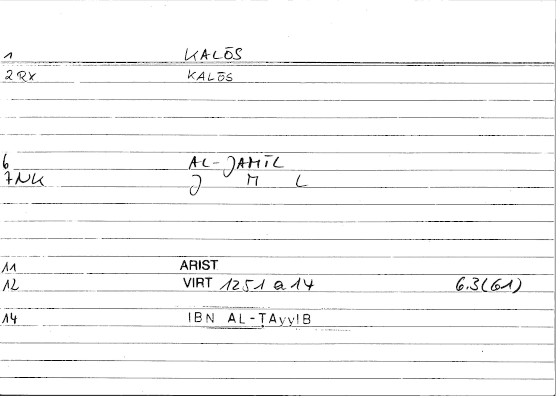 1 KALŌS
2RX KALŌS
6 AL-JAMĪL
7NK J M L
11 ARIST
12 VIRT 1251 a 14 6.3(61)
14 IBN AL-ṬAyyIB